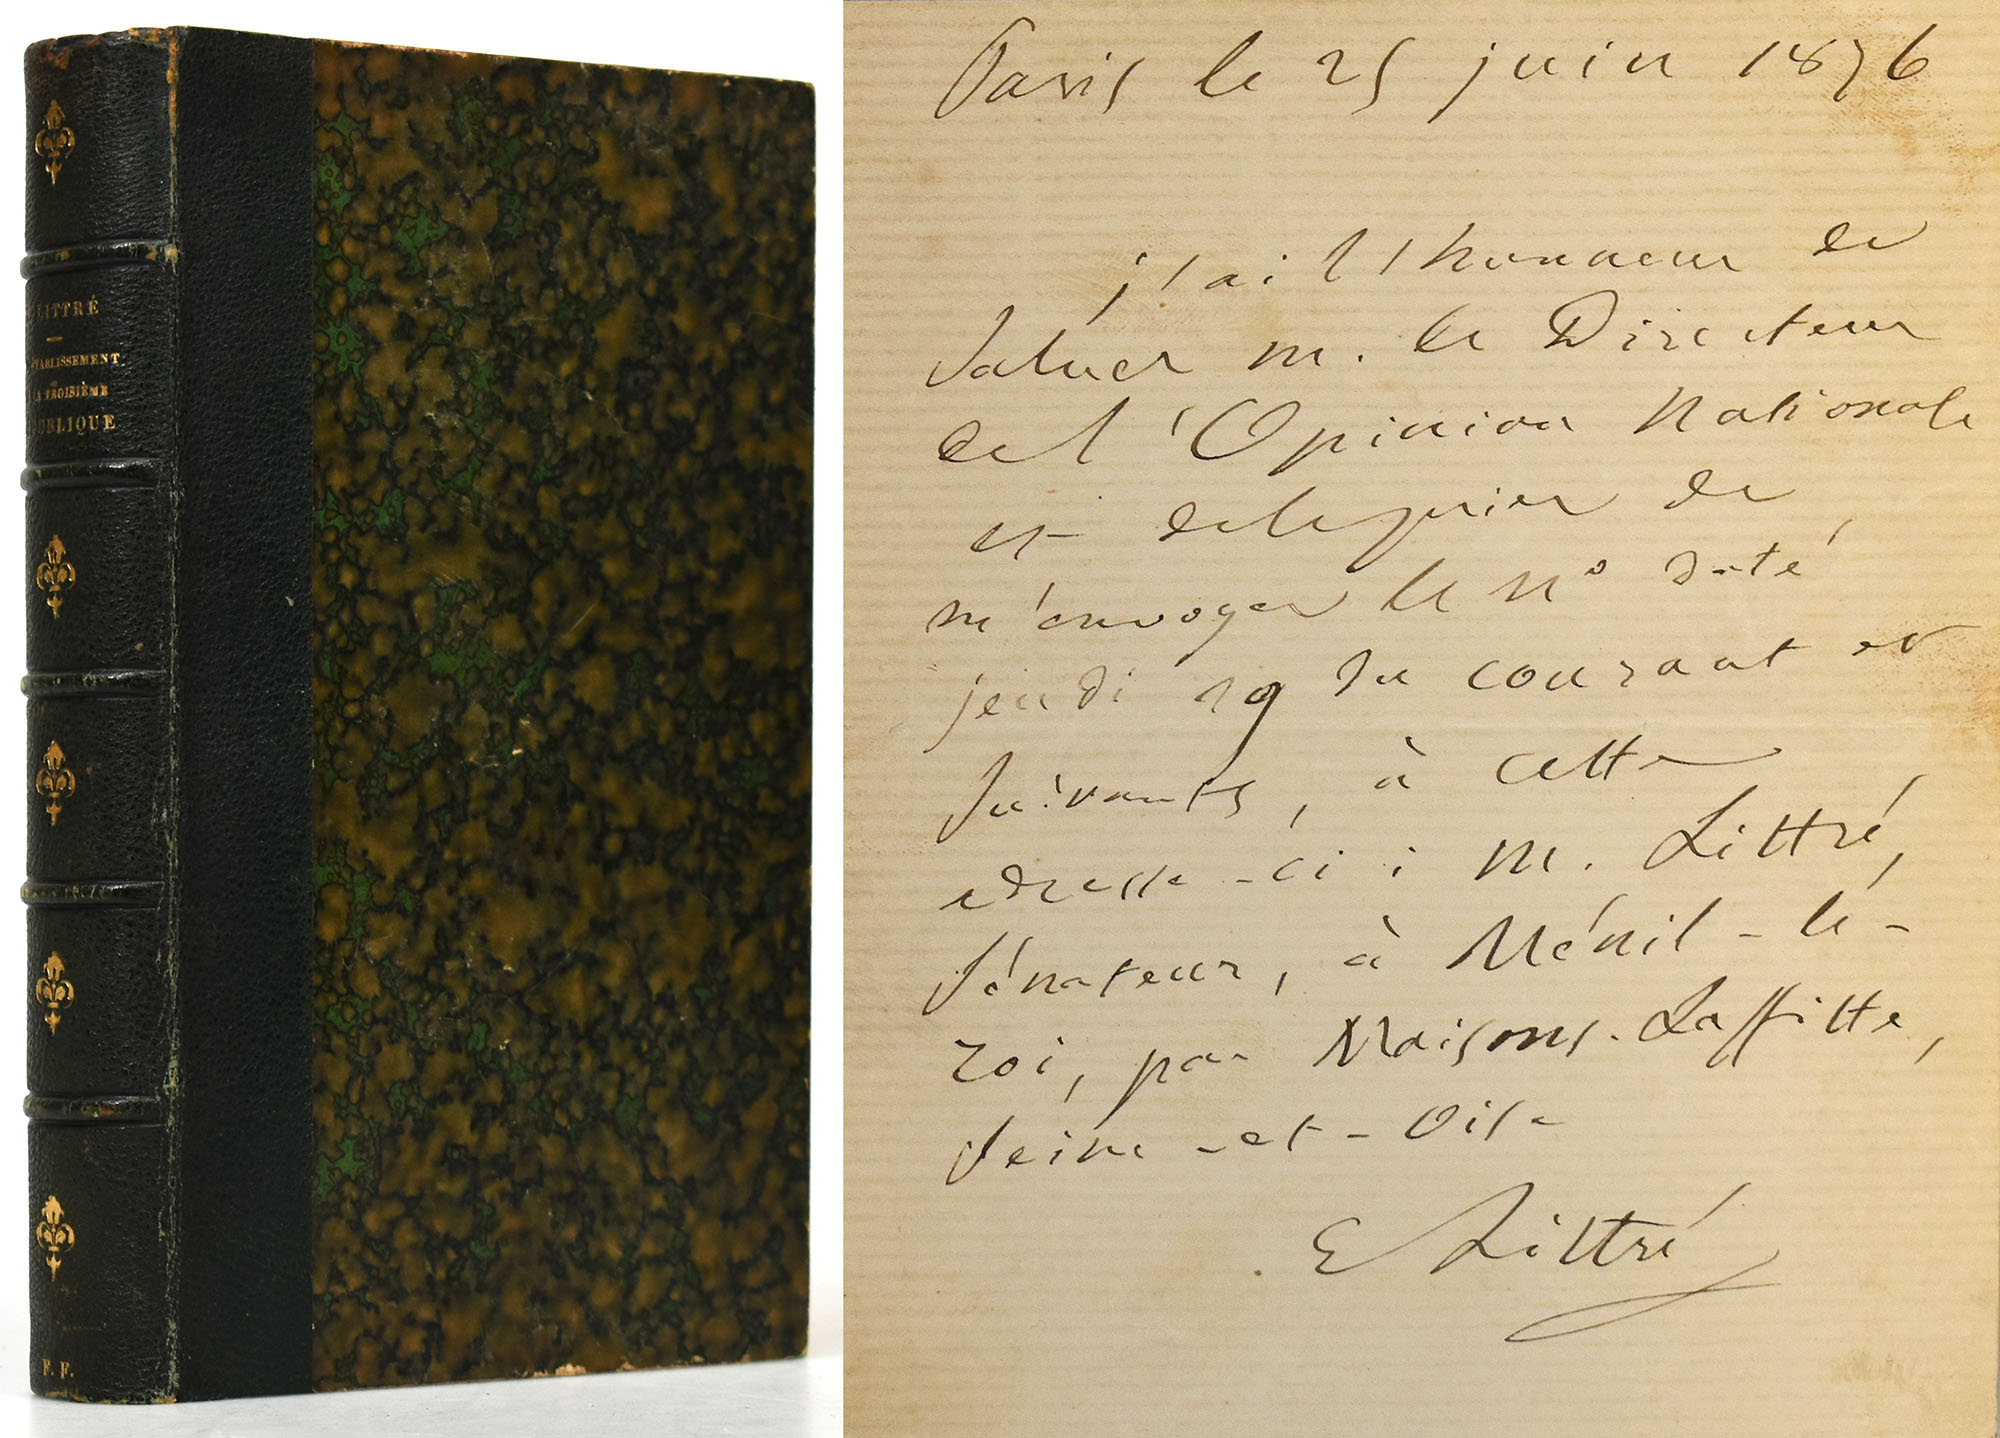 LITTRÉ
TABLISSEMENT
DE
LA TROISIÈME
PUBLIQUE
F. F.
Paris le 25 juin 1876
j'ai l'honneur de
saluer m. le Directeur
de l'Opinion Nationale
et de le prier de
m'envoyer le n° daté
jeudi 29 du courant et
suivants, à cette
adresse-ci : M. Littré,
sénateur, à Ménil-le-
roi, par Maisons-Laffitte,
Seine-et-Oise
E Littré